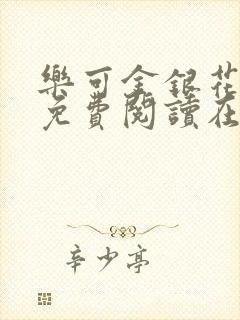 樂可金銀花
免費閱讀在
辛少亭